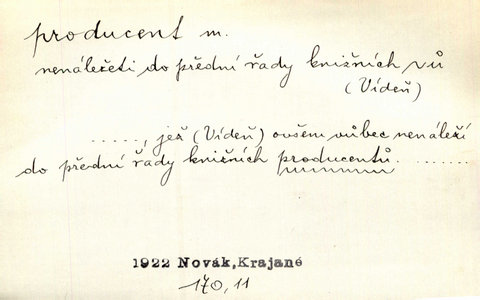 producent m.
nenáležeti do přední řady knižních -ů
(Vídeň)
....., jež (Vídeň) ovšem vůbec nenáleží
do přední řady knižních producentů. .......
1922 Novák,Krajané
170, 11